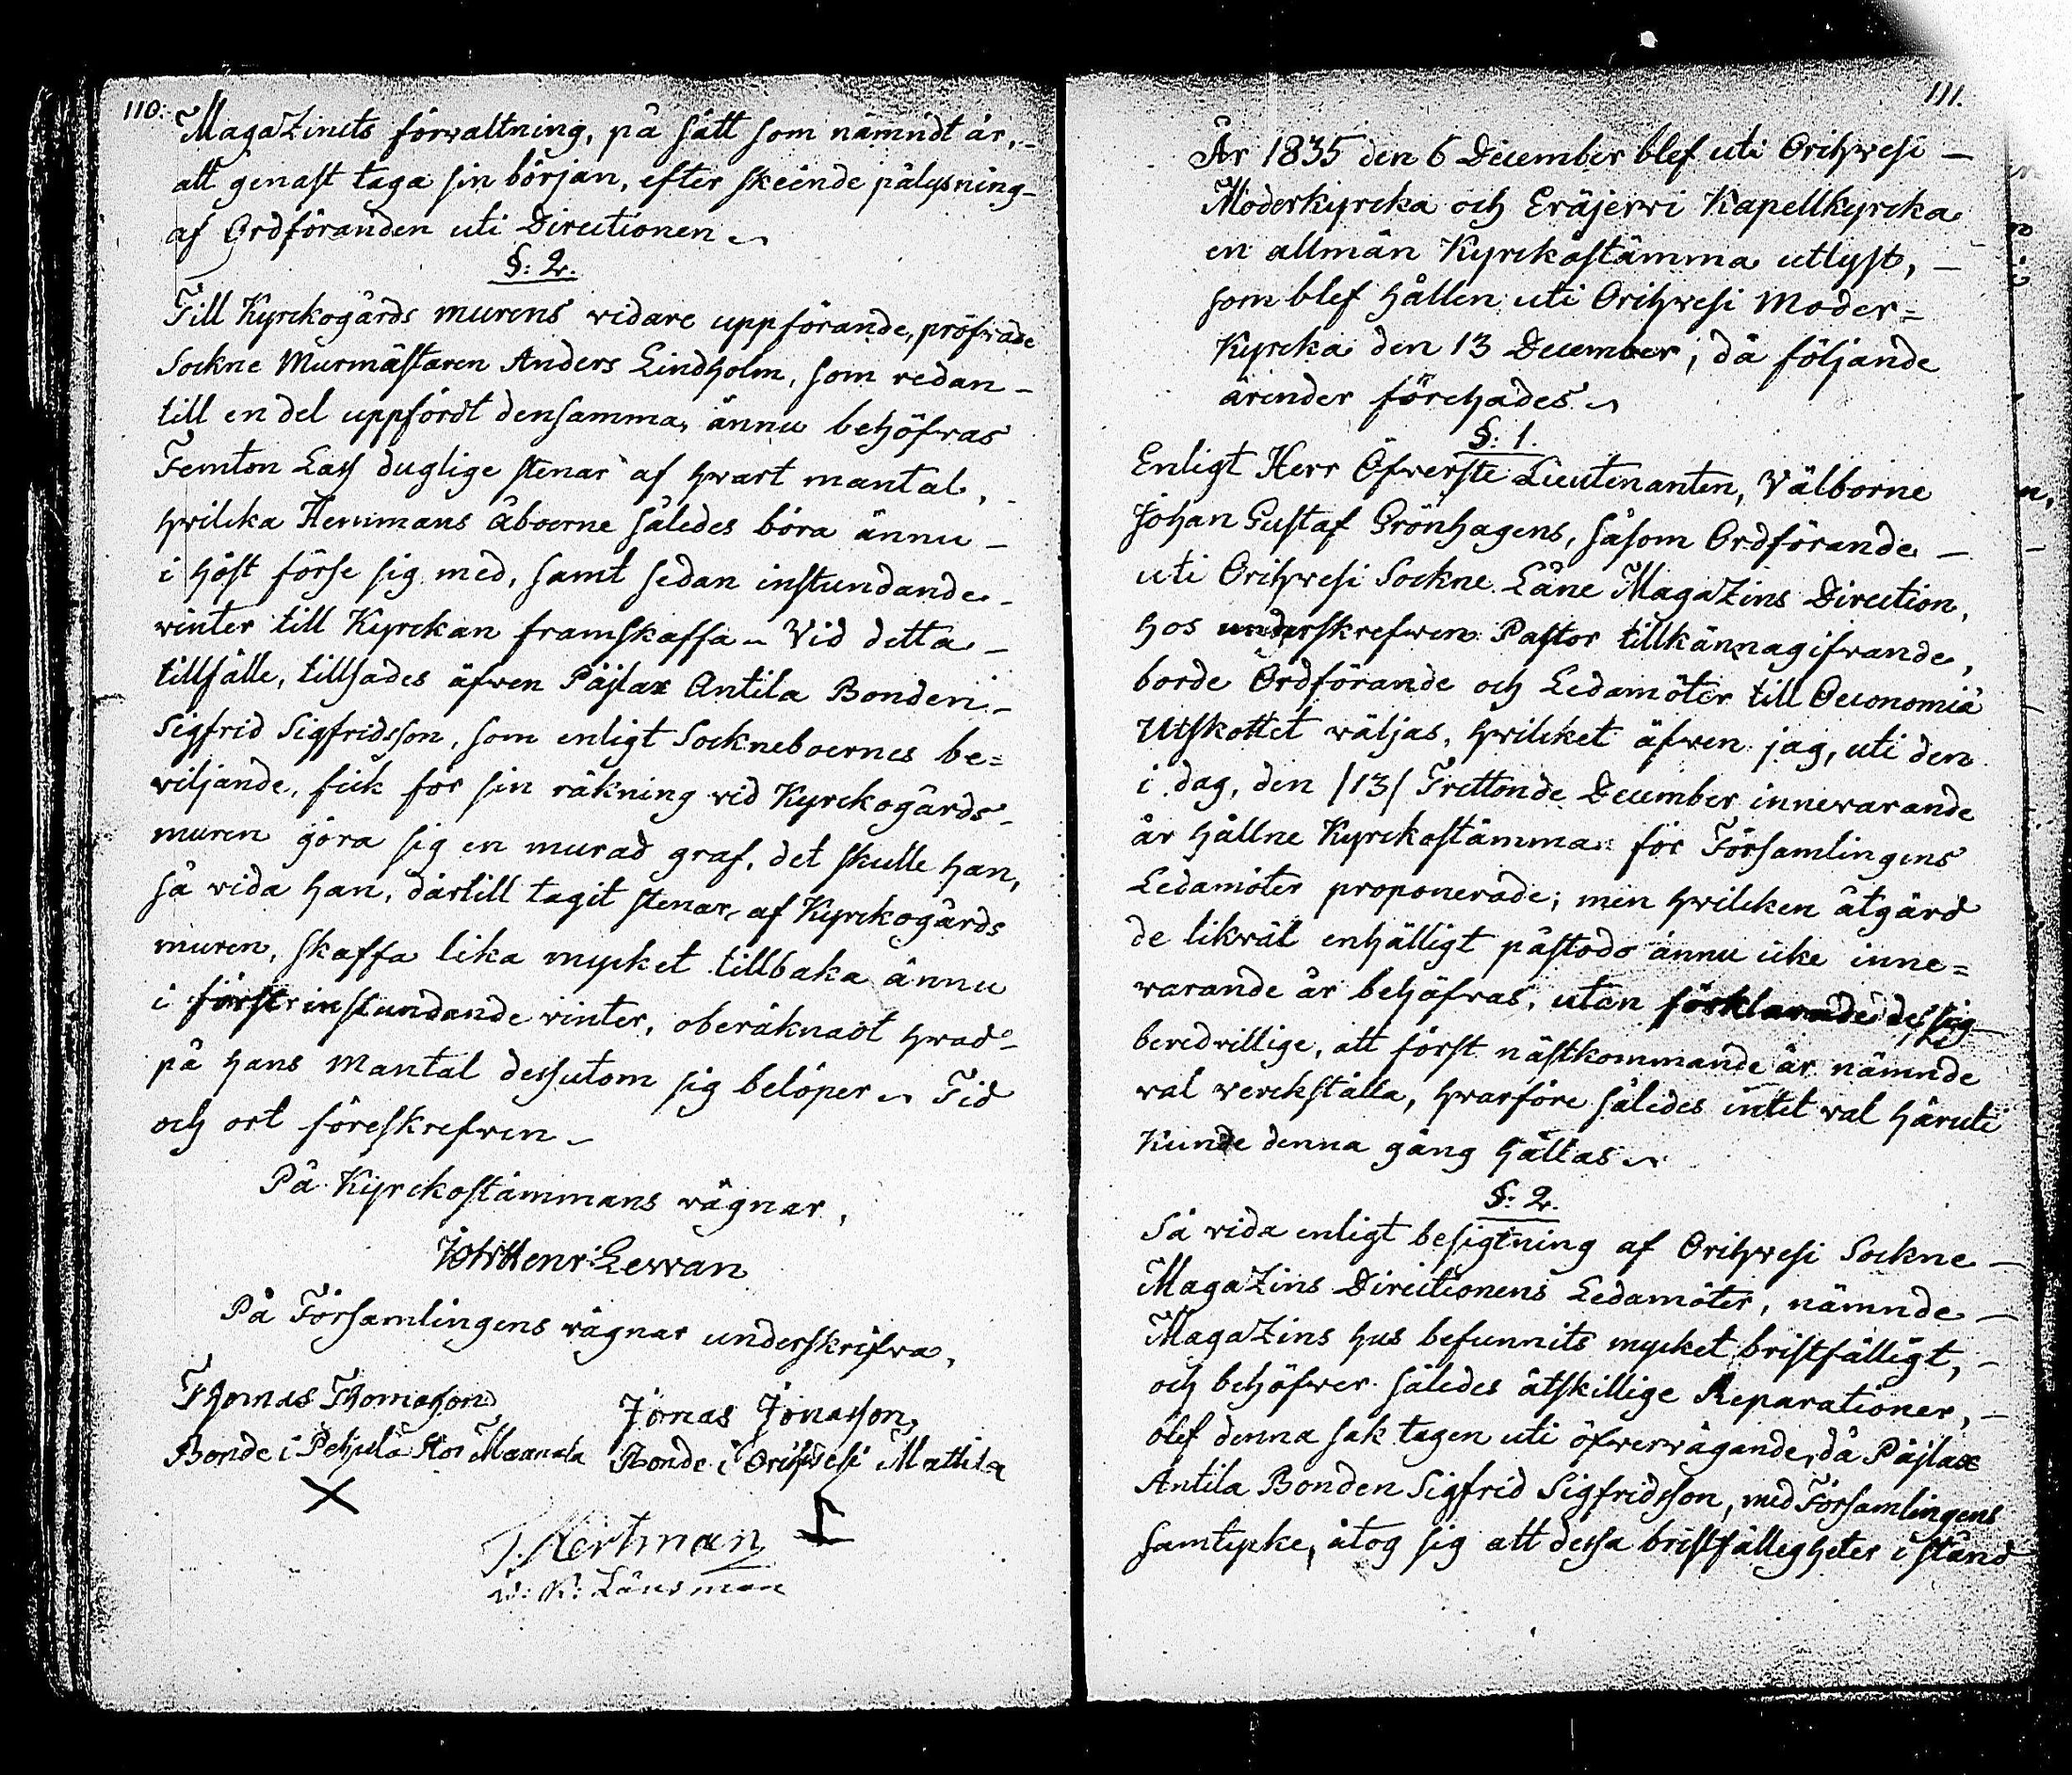 110.
MagaZinets förvaltning, på sätt som nämndt är, -
att genast taga sin början, efter skeende pålysning -
af Ordföranden uti Directionen ~
§: 2.
Till Kyrckogårds murens vidare uppförande, pröfvade
Sockne Murmästaren Anders Lindholm, som redan -
till en del uppfördt densamma, ännu behöfvas
Femton Lass duglige stenar af hvart mantal, -
hvilcka Hemmans åboerne således böra ännu -
i höst förse sig med, samt sedan instundande -
vinter till Kyrckan framskaffa ~ Vid detta -
tillfälle, tillsades äfven Päjlax Antila Bonden -
Sigfrid Sigfridsson, som enligt Sockneboernes be=
viljande, fick för sin räkning vid Kyrckogårds-
muren göra sig en murad graf, det skulle han,
så vida han, därtill tagit stenar, af Kyrckogårds
muren, skaffa lika mycket tillbaka ännu
i först instundande vinter, oberäknadt hvad -
på hans Mantal dessutom sig belöper ~ Tid
och ort föreskrefven ~
På Kyrckostämmans vägnar,
Joh: Henr: Levvan
På Församlingens vägnar underskrifva,
Thomas Thomasson
Jonas Jonasson,
Bonde i Pehula Stor Maunula
Bonde i Orihwesi Mattila
X
J. Hertman
v: K: Länsman
111.
År 1835 den 6 December blef uti Orihvesi -
Moderkyrcka och Eräjervi Kapellkyrcka
en allmän Kyrckostämma utlyst, -
som blef hållen uti Orihvesi Moder=
Kyrcka den 13 December, då följande
ärender förehades ~
§: 1.
Enligt Herr Öfwerste Lieutenanten, Välborne
Johan Gustaf Grönhagens, såsom Ordförande -
uti Orihvesi Sockne Låne MagaZins Direction,
hos underskrefven Pastor tillkännagifvande,
borde Ordförande och Ledamöter till Oeconomiæ
Utskottet väljas, hvilcket äfven jag, uti den
i dag, den /13/ Trettonde December innevarande
år hållne Kyrckostämma för Församlingens
Ledamöter proponerade; men hvilcken åtgärd
de likväl enhälligt påstodo ännu icke inne=
varande år behöfvas, utan förklarade de sig
beredvillige, att först nästkommande år nämnde
val verckställa, hvarföre således intet val häruti
Kunde denna gång hållas ~
§: 2.
Så vida enligt besigtning af Orihvesi Sockne -
MagaZins Directionens Ledamöter, nämnde -
MagaZins hus befunnits mycket bristfälligt, -
och behöfver således åtskillige Reparationer, -
blef denna sak tagen uti öfvervägande, då Päjlax
Antila Bonden Sigfrid Sigfridsson, med Församlingens
samtycke, åtog sig att dessa bristfälligheter i stånd